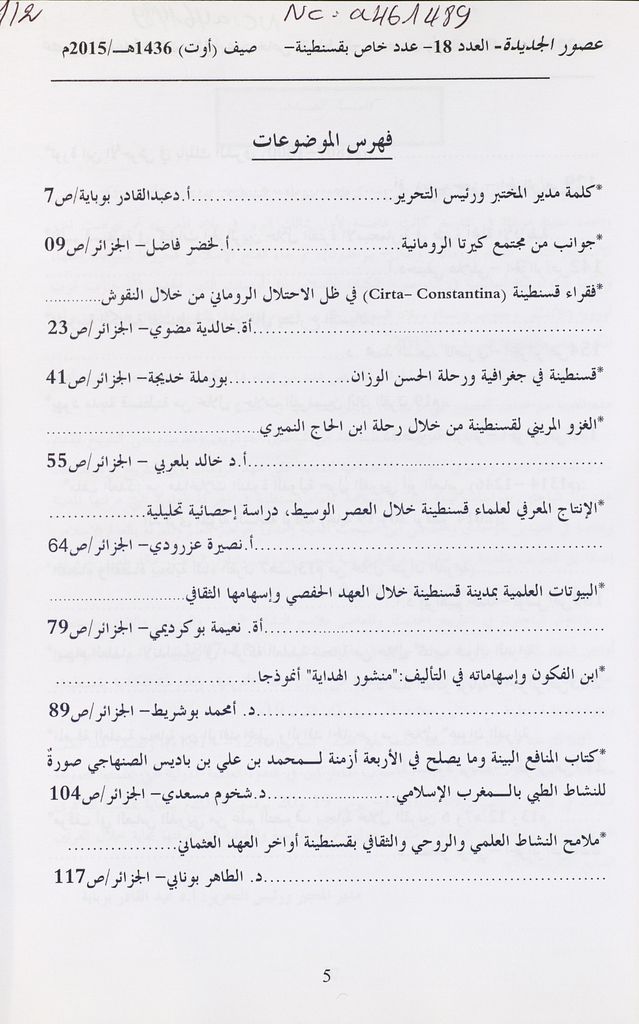 112
NC: a461489
عصور الجديدة- العدد 18- عدد خاص بقسنطينة- صيف (أوت) 1436هـ/2015م
فهرس الموضوعات
*كلمة مدير المختبر ورئيس التحرير..............................أ.دعبدالقادر بوباية/ص7
*جوانب من مجتمع كيرتا الرومانية..........................أ.لخضر فاضل- الجزائر/ص09
*فقراء قسنطينة (Cirta- Constantina) في ظل الاحتلال الروماني من خلال النقوش............
.....................................................أة.خالدية مضوي- الجزائر/ص23
*قسنطينة في جغرافية ورحلة الحسن الوزان....................بورملة خديجة- الجزائر/ص41
*الغزو المريني لقسنطينة من خلال رحلة ابن الحاج النميري....................................
.....................................................أ.د خالد بلعربي - الجزائر/ص55
*الإنتاج المعرفي لعلماء قسنطينة خلال العصر الوسيط، دراسة إحصائية تحليلية...................
.....................................................أ.نصيرة عزرودي- الجزائر/ص64
*البيوتات العلمية بمدينة قسنطينة خلال العهد الحفصي وإسهامها الثقافي.......................
.....................................................أة. نعيمة بوكرديمي- الجزائر/ص79
*ابن الفكون وإسهاماته في التأليف:"منشور الهداية" أنموذجا....................................
.....................................................د. أمحمد بوشريط- الجزائر/ص89
*كتاب المنافع البينة وما يصلح في الأربعة أزمنة لـمحمد بن علي بن باديس الصنهاجي صورةٌ
للنشاط الطبي بالـمغرب الإسلامي......................د.شخوم مسعدي- الجزائر/ص104
*ملامح النشاط العلمي والروحي والثقافي بقسنطينة أواخر العهد العثماني......................
.....................................................د. الطاهر بونابي- الجزائر/ص117
5